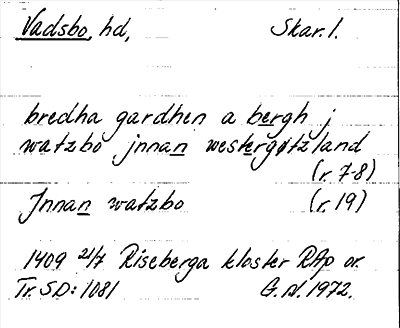 Vadsbo, hd, Skar. l.
bredha gardhen a bergh j
watzbo jnnan westergøtzland
(r. 7-8)
Jnnan watzbo (r. 19)
1409 21/7 Riseberga kloster RAp or
Tr. SD: 1081 G.A. 1972.